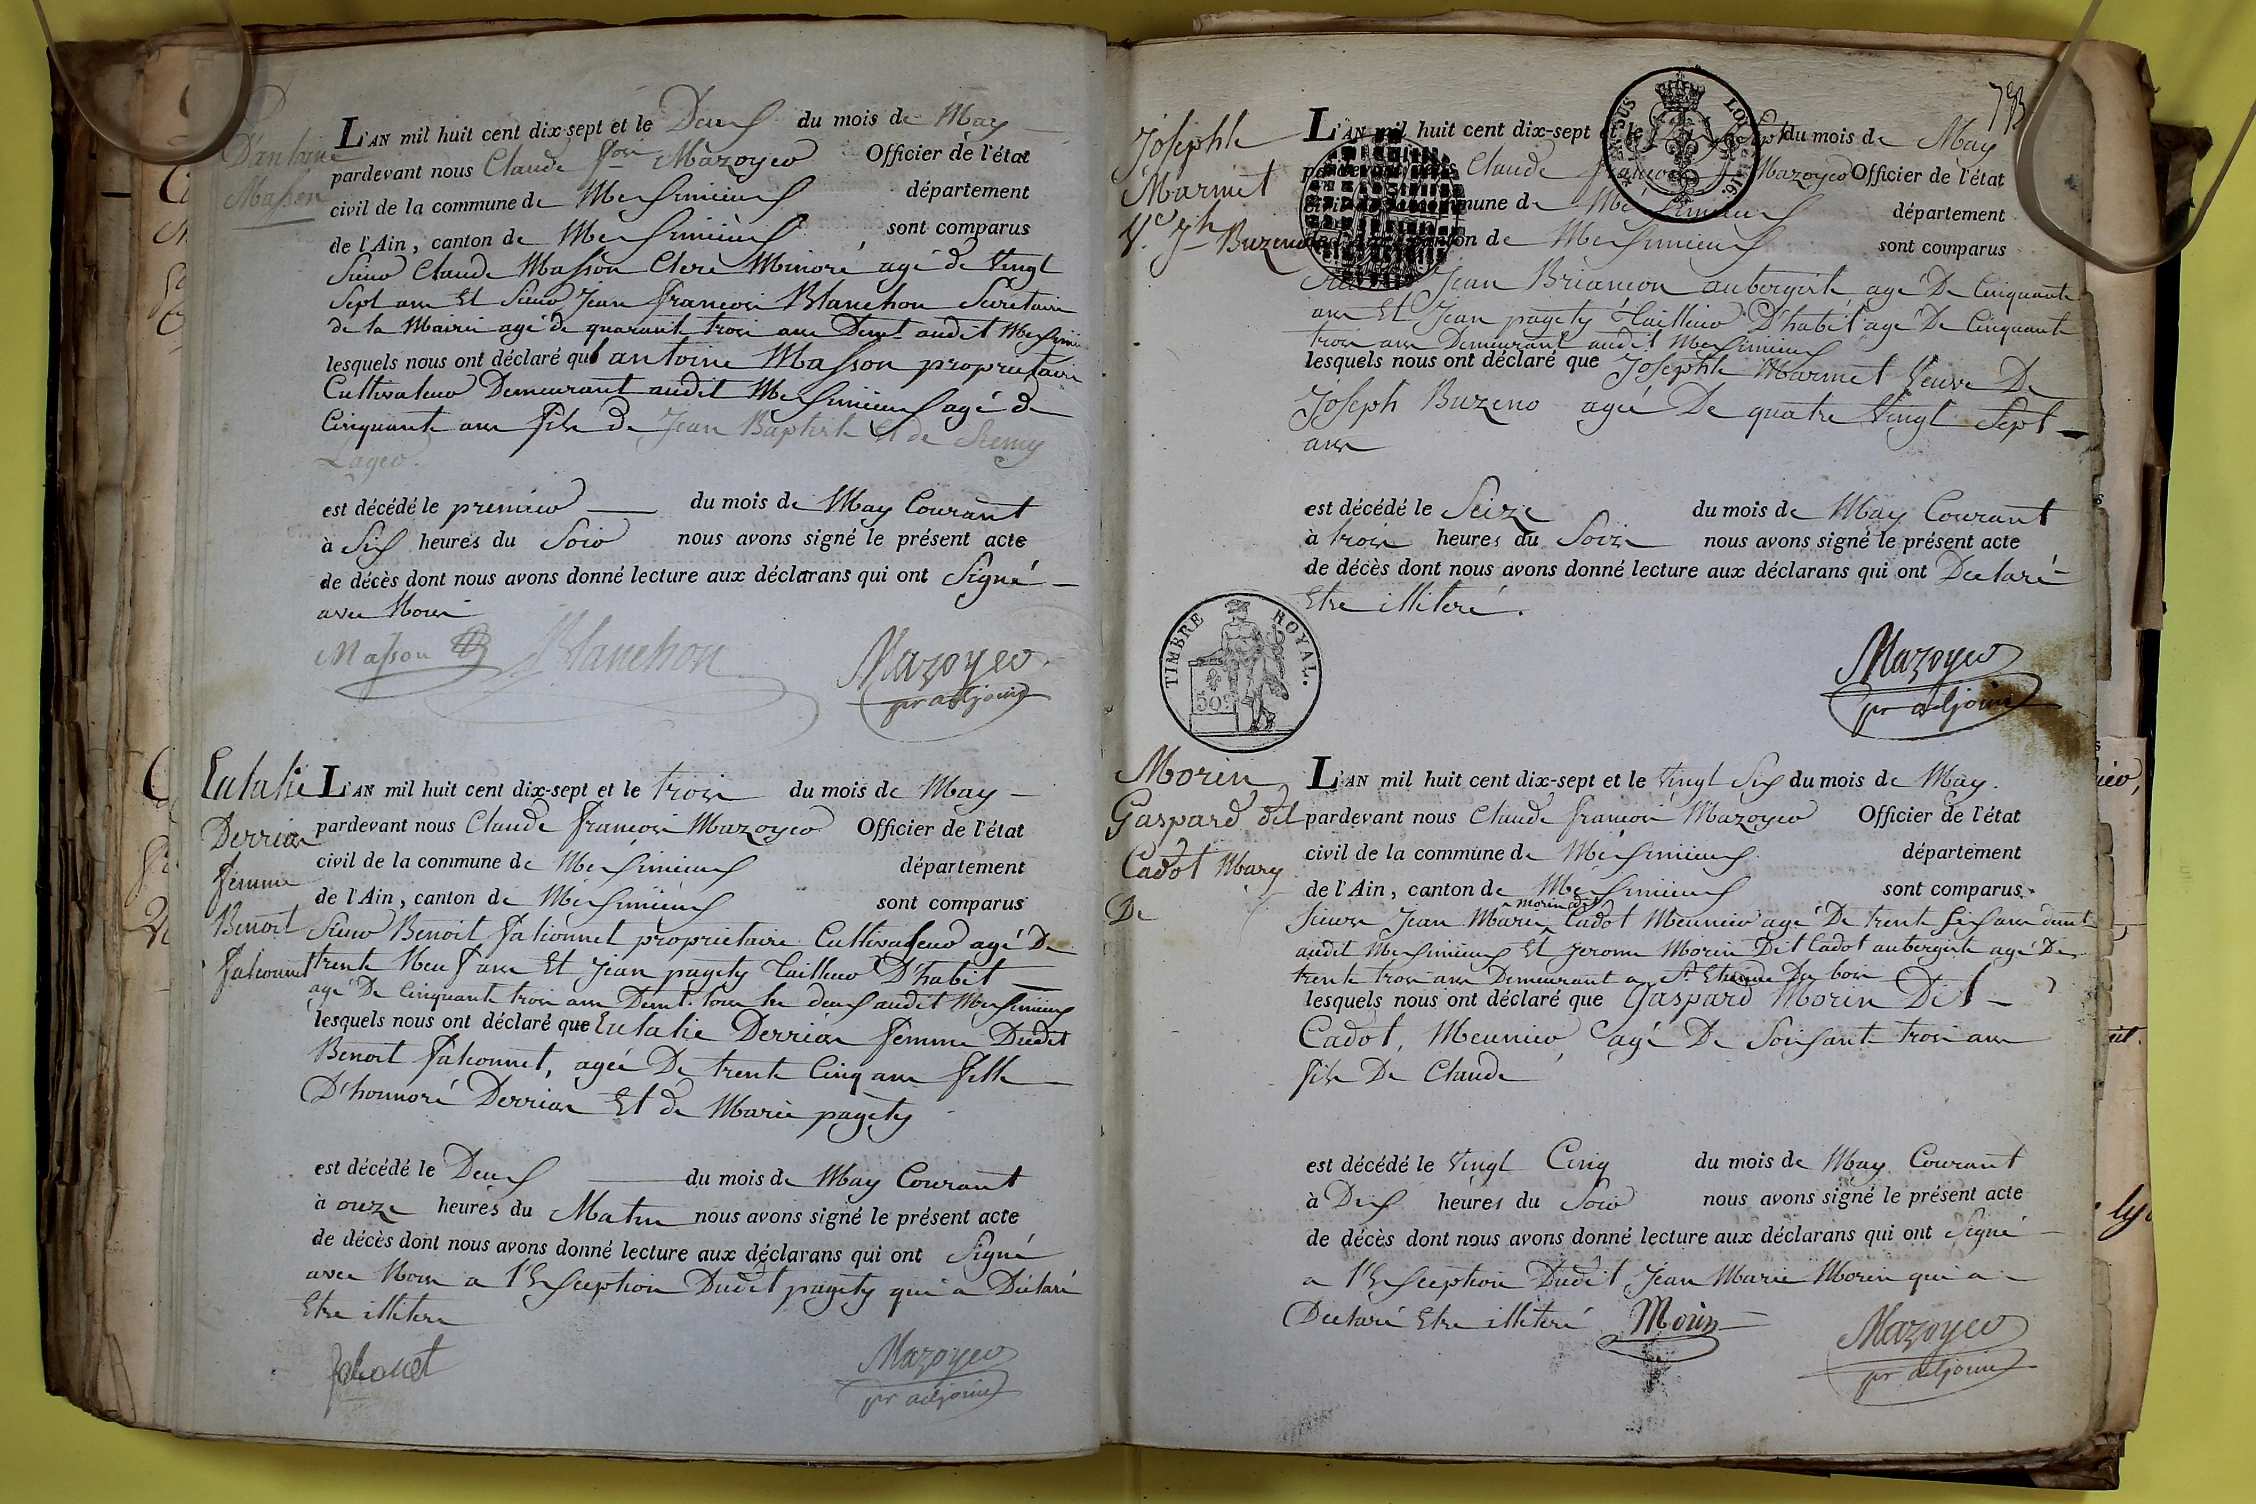 D'antoine
Masson
L'AN mil huit cent dix-sept et le Deux du mois de May
pardevant nous Claude fois Mazoyer Officier de l'état
civil de la commune de Meximieux département
de l'Ain, canton de Meximieux sont comparus
Sieur Claude Masson Clerc Minoré agé de Vingt
Sept ans Et Sieur Jean françois Blanchon Secretaire
de la Mairie agé de quarante trois ans Demt audit Meximieux
lesquels nous ont déclaré que antoine Masson proprietaire
Cultivateur Demeurant audit Meximieux agé de
Cinquante ans fils de Jean Baptiste Et de Remy
Lager.
est décédé le premier du mois de May Courant
à Six heures du Soir nous avons signé le présent acte
de décès dont nous avons donné lecture aux déclarans qui ont Signé
avec Nous
Masson Blanchon Mazoyer
pr adjoint
Eulalie
Derrias
femme
Benoit
falconnet
L'AN mil huit cent dix-sept et le trois du mois de May
pardevant nous Claude françois Mazoyer Officier de l'état
civil de la commune de Meximieux département
de l'Ain, canton de Meximieux sont comparus
Sieur Benoit falconnet proprietaire Cultivateur agé De
trente Neuf ans Et Jean pagety Tailleur D'habit
agé De Cinquante trois ans Demt. tous les deux audit Meximieux
lesquels nous ont déclaré que Eulalie Derrias femme Dudit
Benoit falconnet, agée De trente Cinq ans fille
D'honnoré Derrias Et de Marie pagety
est décédé le Deux du mois de May Courant
à onze heures du Matin nous avons signé le présent acte
de décès dont nous avons donné lecture aux déclarans qui ont Signé
avec Nous a l'Exception Dudit pagety qui a Déclaré
Etre illitere
falconet Mazoyer
pr adjoint
Josephte
Marmet
Ve. Jh Buzeno
L'AN mil huit cent dix-sept et le Sept du mois de May
pardevant nous Claude françois Mazoyer Officier de l'état
civil de la commune de Meximieux département
de l'Ain, canton de Meximieux sont comparus
Jean Briançon aubergiste agé De Cinquante
ans Et Jean pagety Tailleur D'habit agé De Cinquante
trois ans Demeurant audit Meximieux
lesquels nous ont déclaré que Josephte Marmet Veuve De
Joseph Buzeno agée De quatre Vingt Sept
ans
est décédé le Seize du mois de May Courant
à trois heures du Soir nous avons signé le présent acte
de décès dont nous avons donné lecture aux déclarans qui ont Declaré
Etre illiteré.
TIMBRE ROYAL.
50c
Mazoyer
pr adjoint
Morin
Gaspard dit
Cadot Mary
De
L'AN mil huit cent dix-sept et le Vingt Six du mois de May.
pardevant nous Claude françois Mazoyer Officier de l'état
civil de la commune de Meximieux département
de l'Ain, canton de Meximieux sont comparus
morin dit
Sieurs Jean Marie Cadot Meunier agé De trente Six ans demt
audit Meximieux Et Jerome Morin Dit Cadot aubergiste agé De
trente trois ans Demeurant a St. Etienne Du bois
lesquels nous ont déclaré que Gaspard Morin Dit
Cadot, Meunier agé De Soixante trois ans
fils De Claude
est décédé le Vingt Cinq du mois de May Courant
à Dix heures du Soir nous avons signé le présent acte
de décès dont nous avons donné lecture aux déclarans qui ont Signé
a l'Exception Dudit Jean Marie Morin qui a
Declaré Etre illiteré Morin Mazoyer
pr adjoint